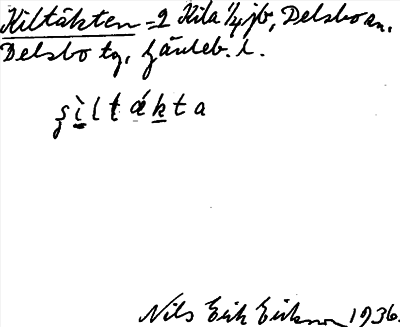 Kiltäkten = 2 Kila 1/4 jb, Delsbo sn.
Delsbo tg, Gävleb. l.
ş ì l t ä́ k t a
Nils Erik Eriksson 1936.